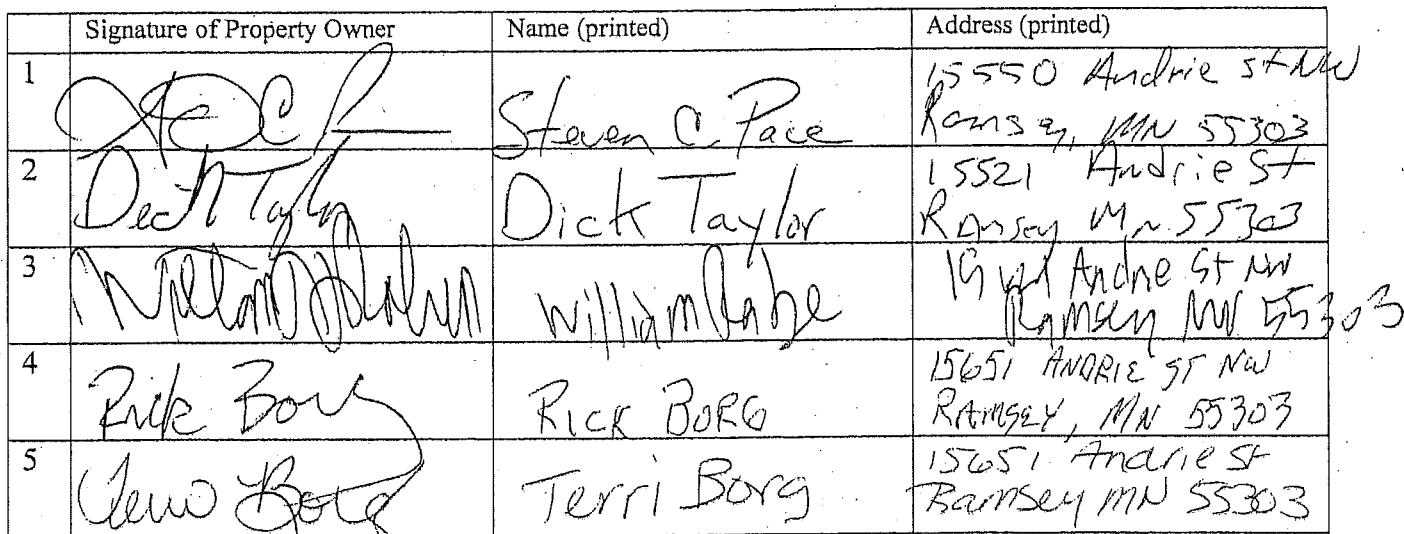 Signature of Property Owner Name (printed) Address (printed)
1 Steven C. Pace 15550 Andrie St NW
Ramsey, MN 55303
2 Dick Taylor Dick Taylor 15521 Andrie St
Ramsey Mn 55303
3 William William Rabe Andrie St NW
Ramsey MN 55303
4 Rick Borg RICK BORG 15651 ANDRIE ST NW
RAMSEY, MN 55303
5 Terri Borg Terri Borg 15651 Andrie St
Ramsey MN 55303